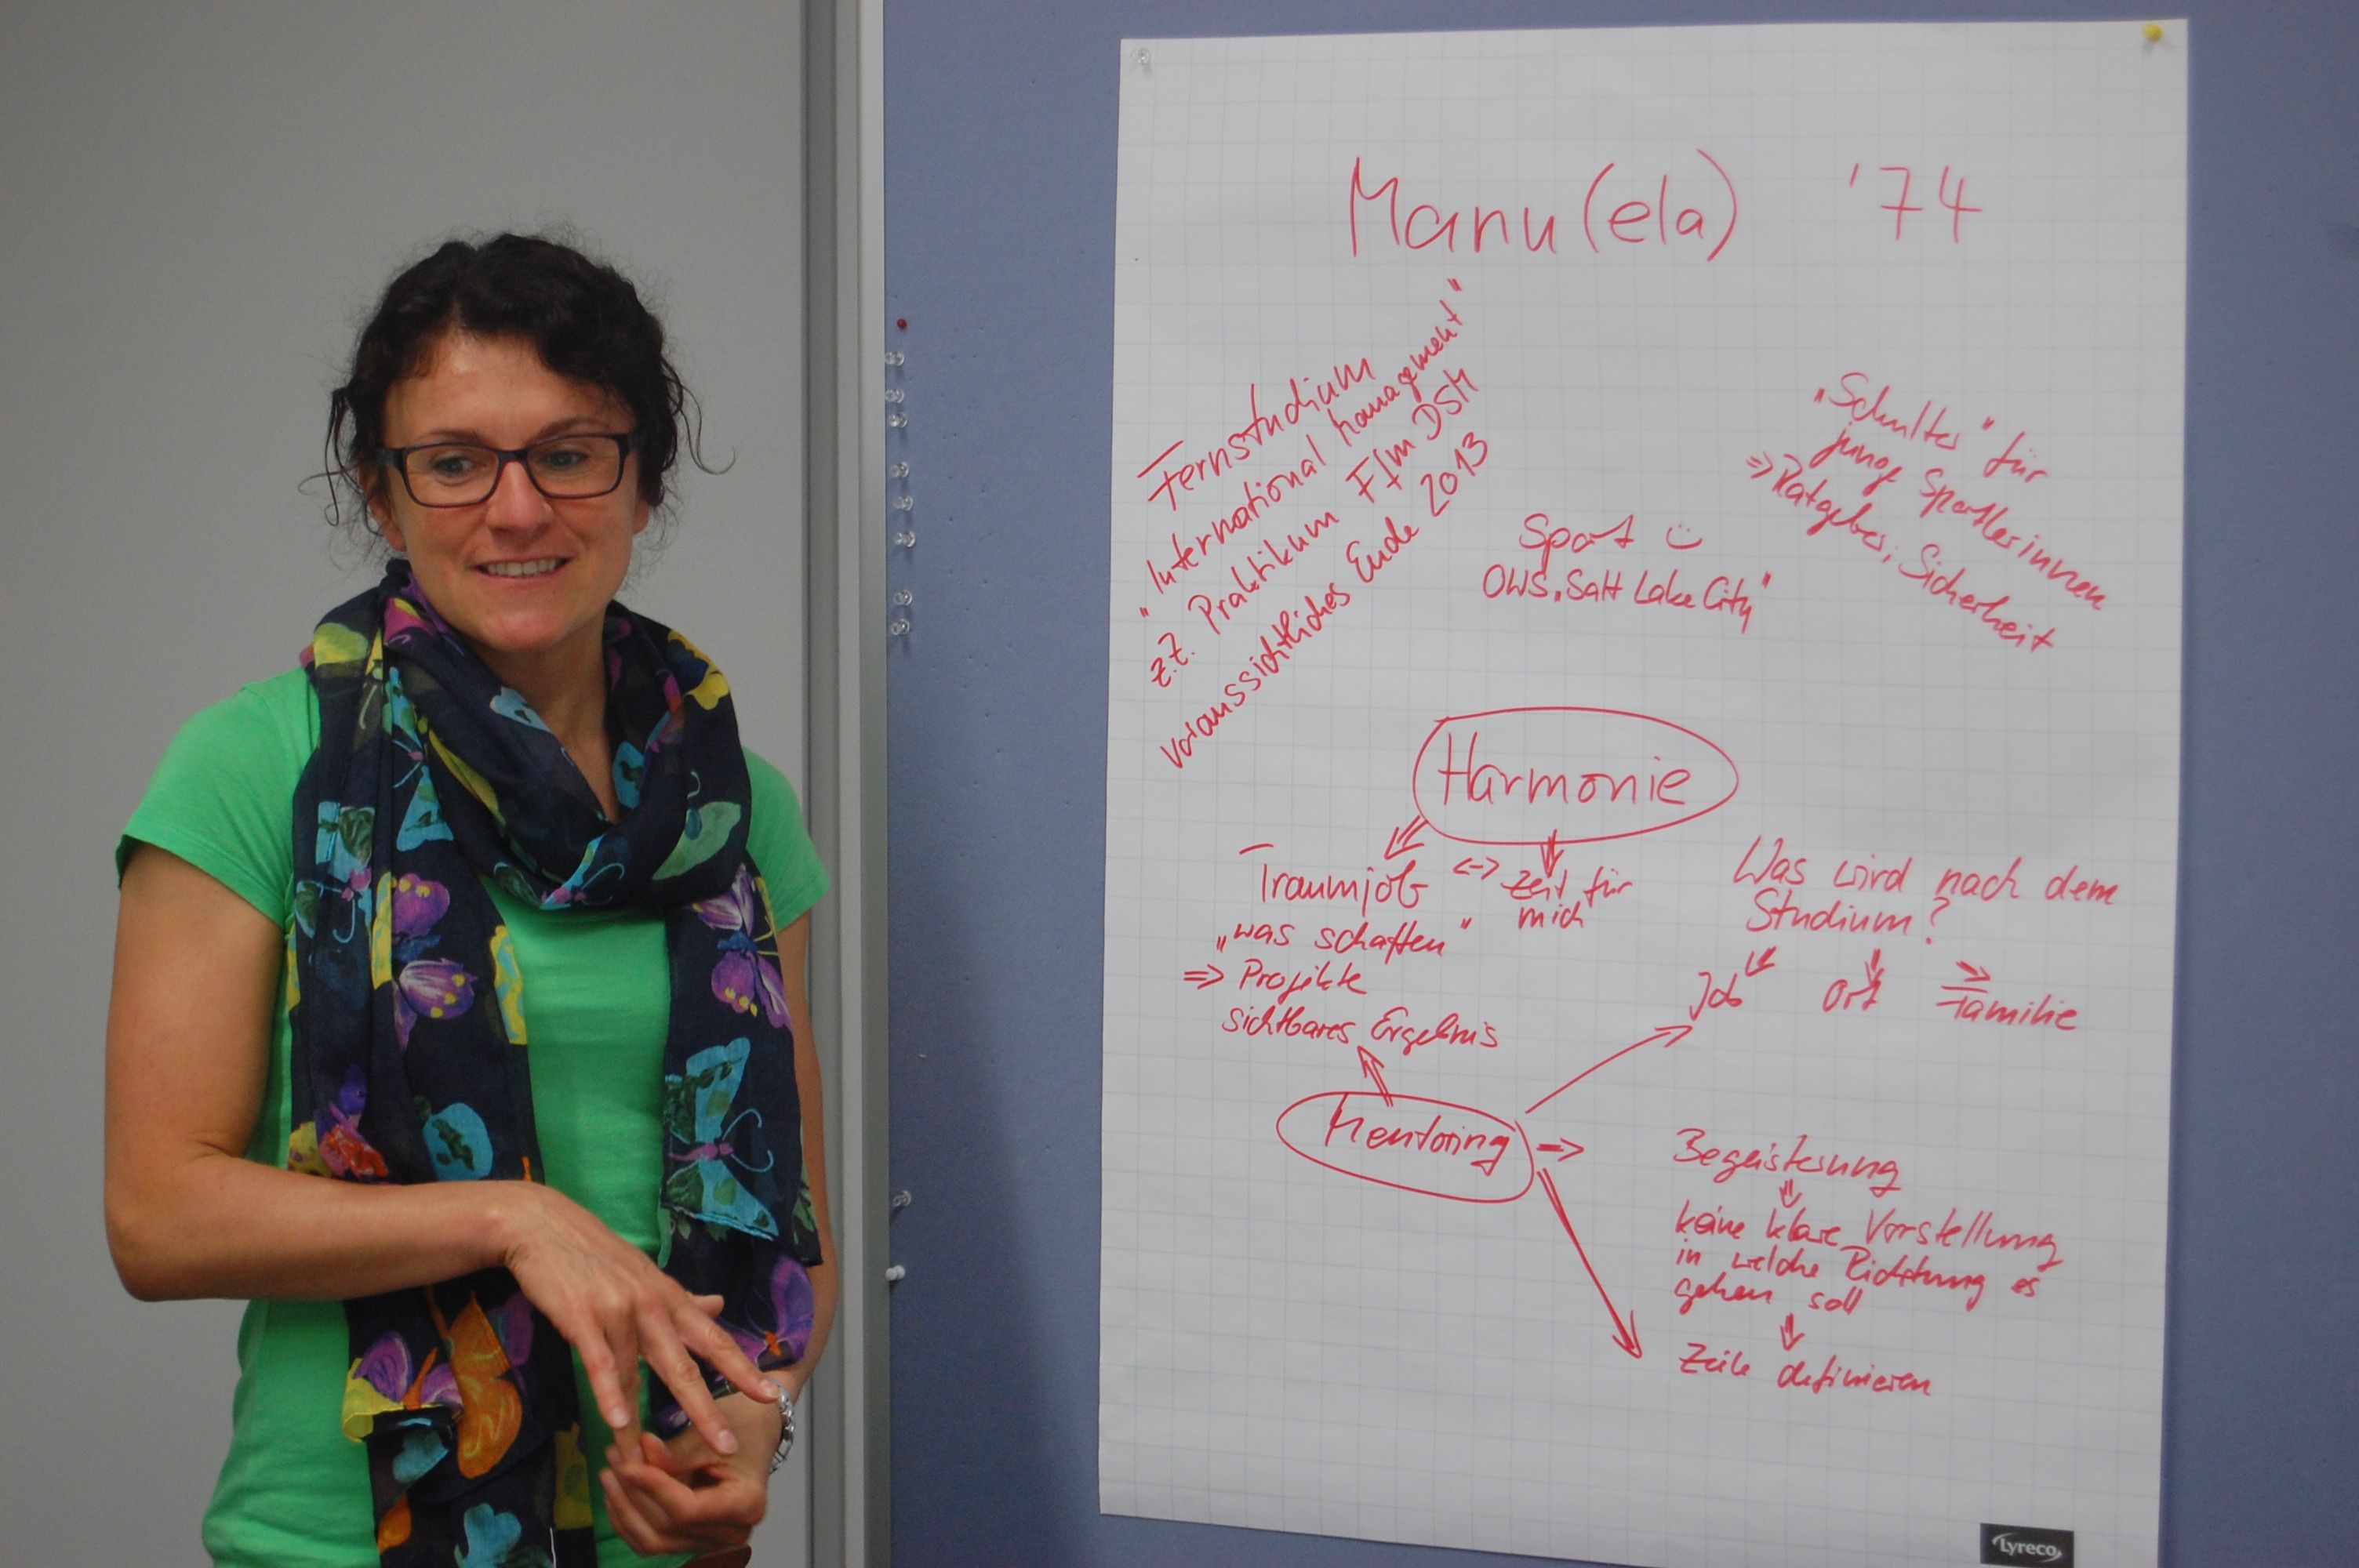 Manu(ela) '74
Fernstudium
"International Management"
z.Z. Praktikum Ffm DSM
voraussichtliches Ende 2013
Sport
OWS "Salt Lake City"
"Schulter" für
junge Sportlerinnen
=> Ratgeber, Sicherheit
Harmonie
Traumjob <-> Zeit für
mich
"was schaffen"
=> Projekte
sichtbares Ergebnis
Was wird nach dem
Studium?
Job Ort Familie
Mentoring =>
Begeisterung
keine klare Vorstellung
in welche Richtung es
gehen soll
Ziele definieren
Lyreco